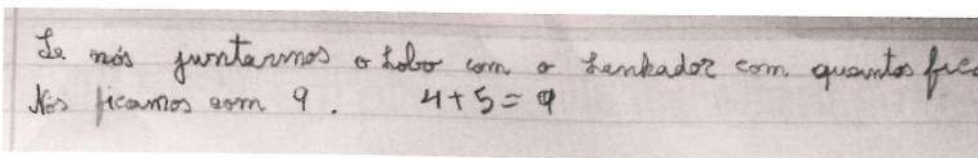 Se nós juntarmos o Lobo com o Lenhador com quantos fica
Nós ficamos com 9. 4+5=9